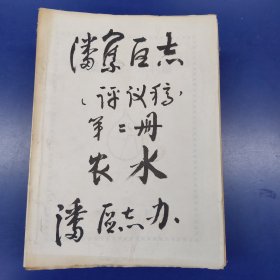 潘集区志
（评议稿）
第二册
农水
潘区志办